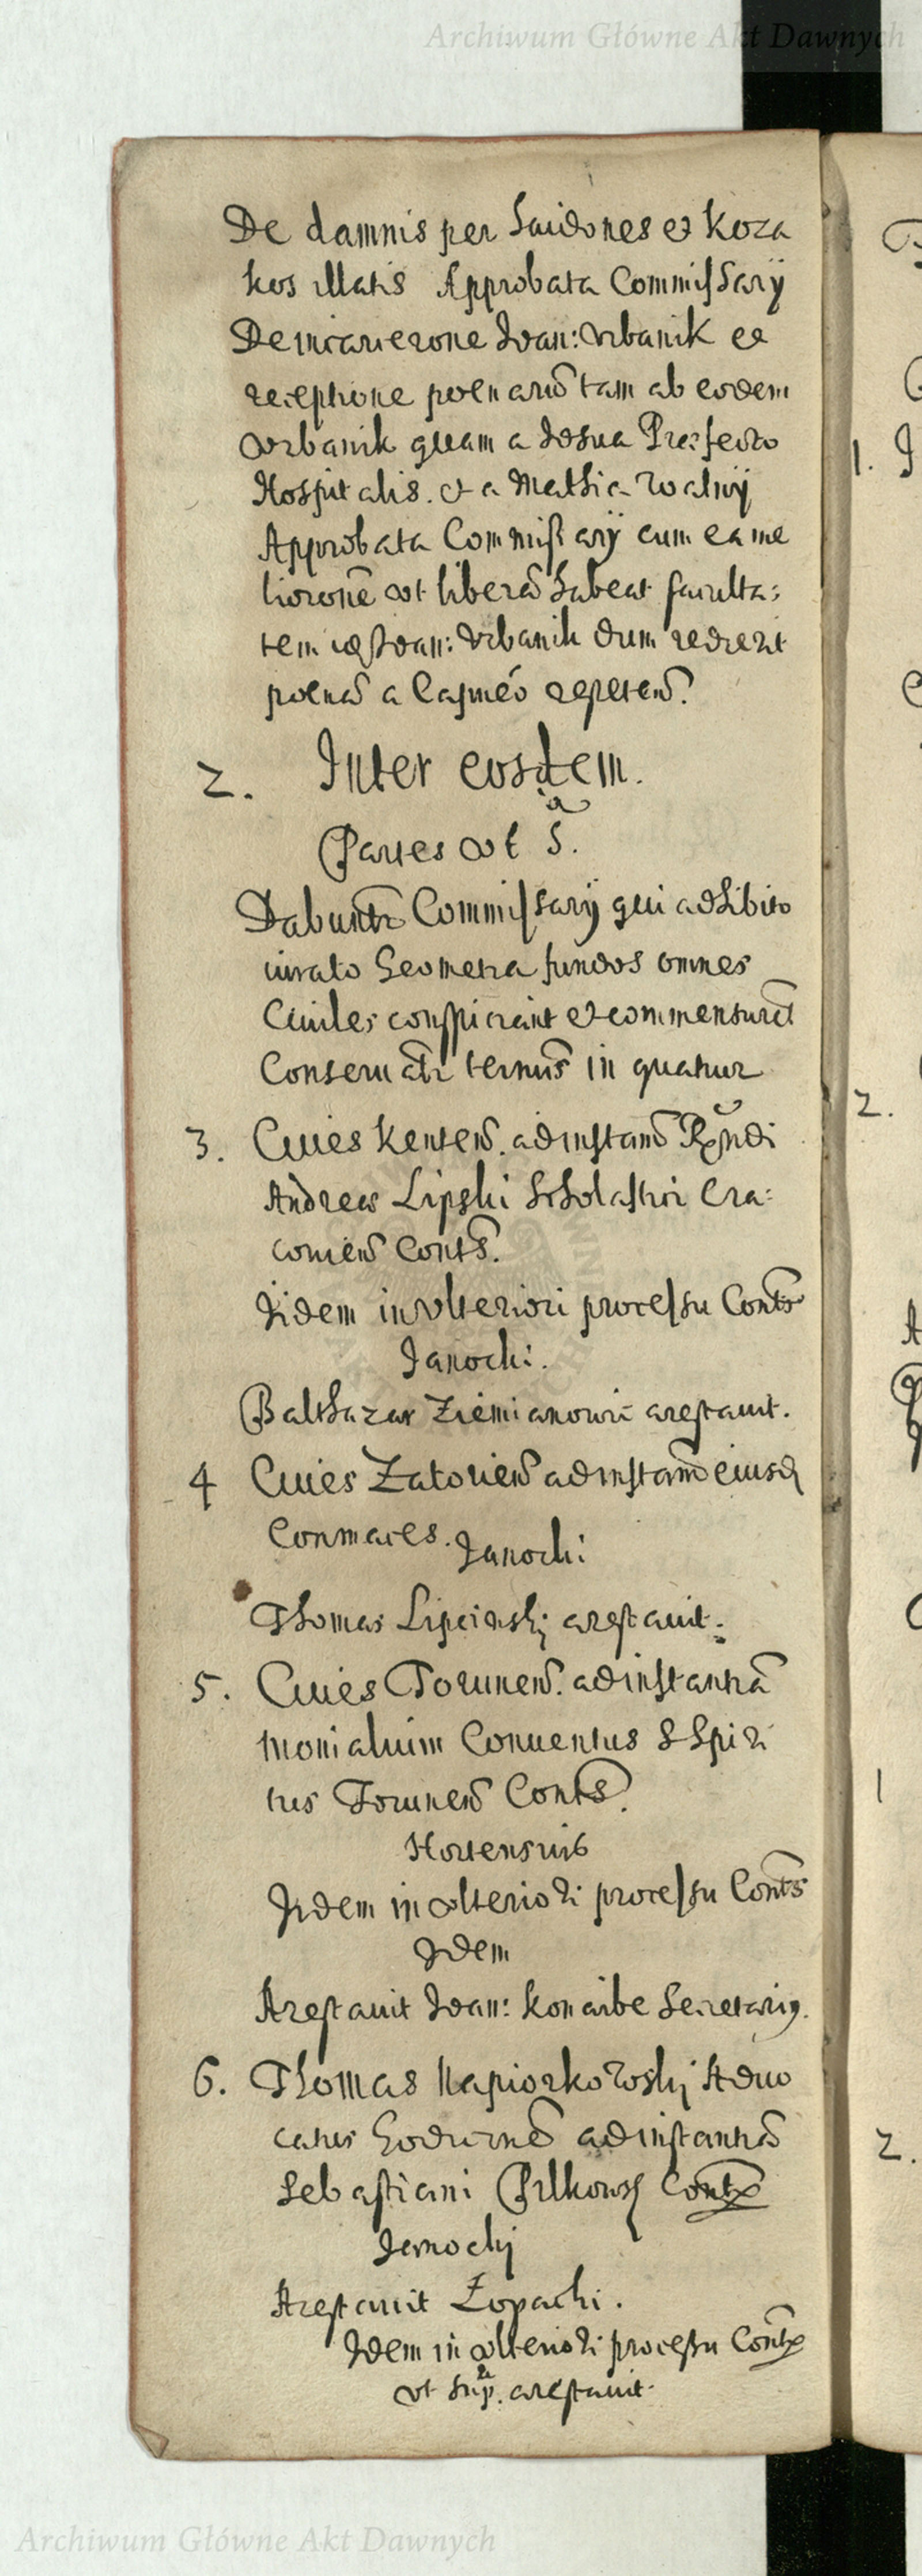 Archiwum Główne Akt Dawnych
De damnis per haidones et koza
kos illatis Approbata Commissarÿ
De incarcerone Joan: Vrbanik et
receptione poenarũ tam ab eodem
Vrbanik quam a Josua Præfecto
Hospitalis. et a Mathia
Approbata Commissarÿ cum ea me
liorone vt liberã habeat faculta:
tem Joan: Vrbanik dum
poenas a repeten̄.
2. Inter eosdem.
Partes vt s̃ᵃ.
Dabuntr Commissarÿ qui adhibito
iurato Geometra fundos omnes
Ciuiles conspiciant et commensurēt
Conseruãtr terminis in quatuor
3. Ciues Kenten̄. ad instan̄ Rñdi
Andreæ Lipski Scholastici Cra:
couien̄ Conts̃.
Iidem in vlteriori processu Conts̃
Janochi.
Balthazar Ziemianowic arestauit.
4 Ciues Zatorien̄ ad instan̄ eiusd
Conmaces. Janochi
Thomas Lipcinskj arestauit.
5. Ciues Torunen̄. ad instantiã
monialium Conuentus S Spiri
tus Torunen̄ Conts̃.
Hortensius
Iidem in vlteriori processu Conts̃
Idem
Arestauit Joan: Konarbe Secretarius.
6. Thomas Napiorkowskj Aduo
catus ad instantiã
Sebastiani Pilkowsk Contx
Janochj
Arestauit Łopacki.
Idem in vlteriori processu Contx
vt supᵃ. arestauit.
1.
2.
1
2.
Archiwum Główne Akt Dawnych